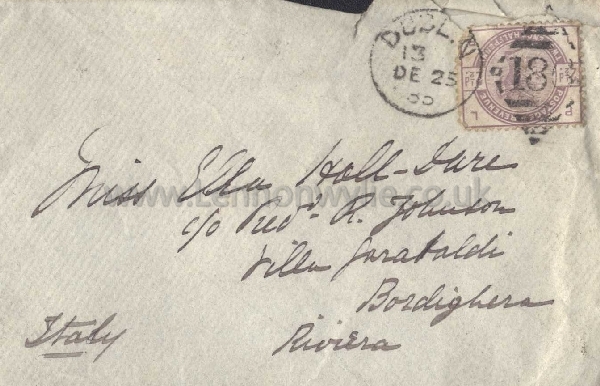 DUBLIN
13
DE 25
85
18
Miss Ella Hall-Dare
c/o Fred. R. Johnson
Villa Garabaldi
Bordighera
Riviera
Italy
www.Lennonwylie.co.uk